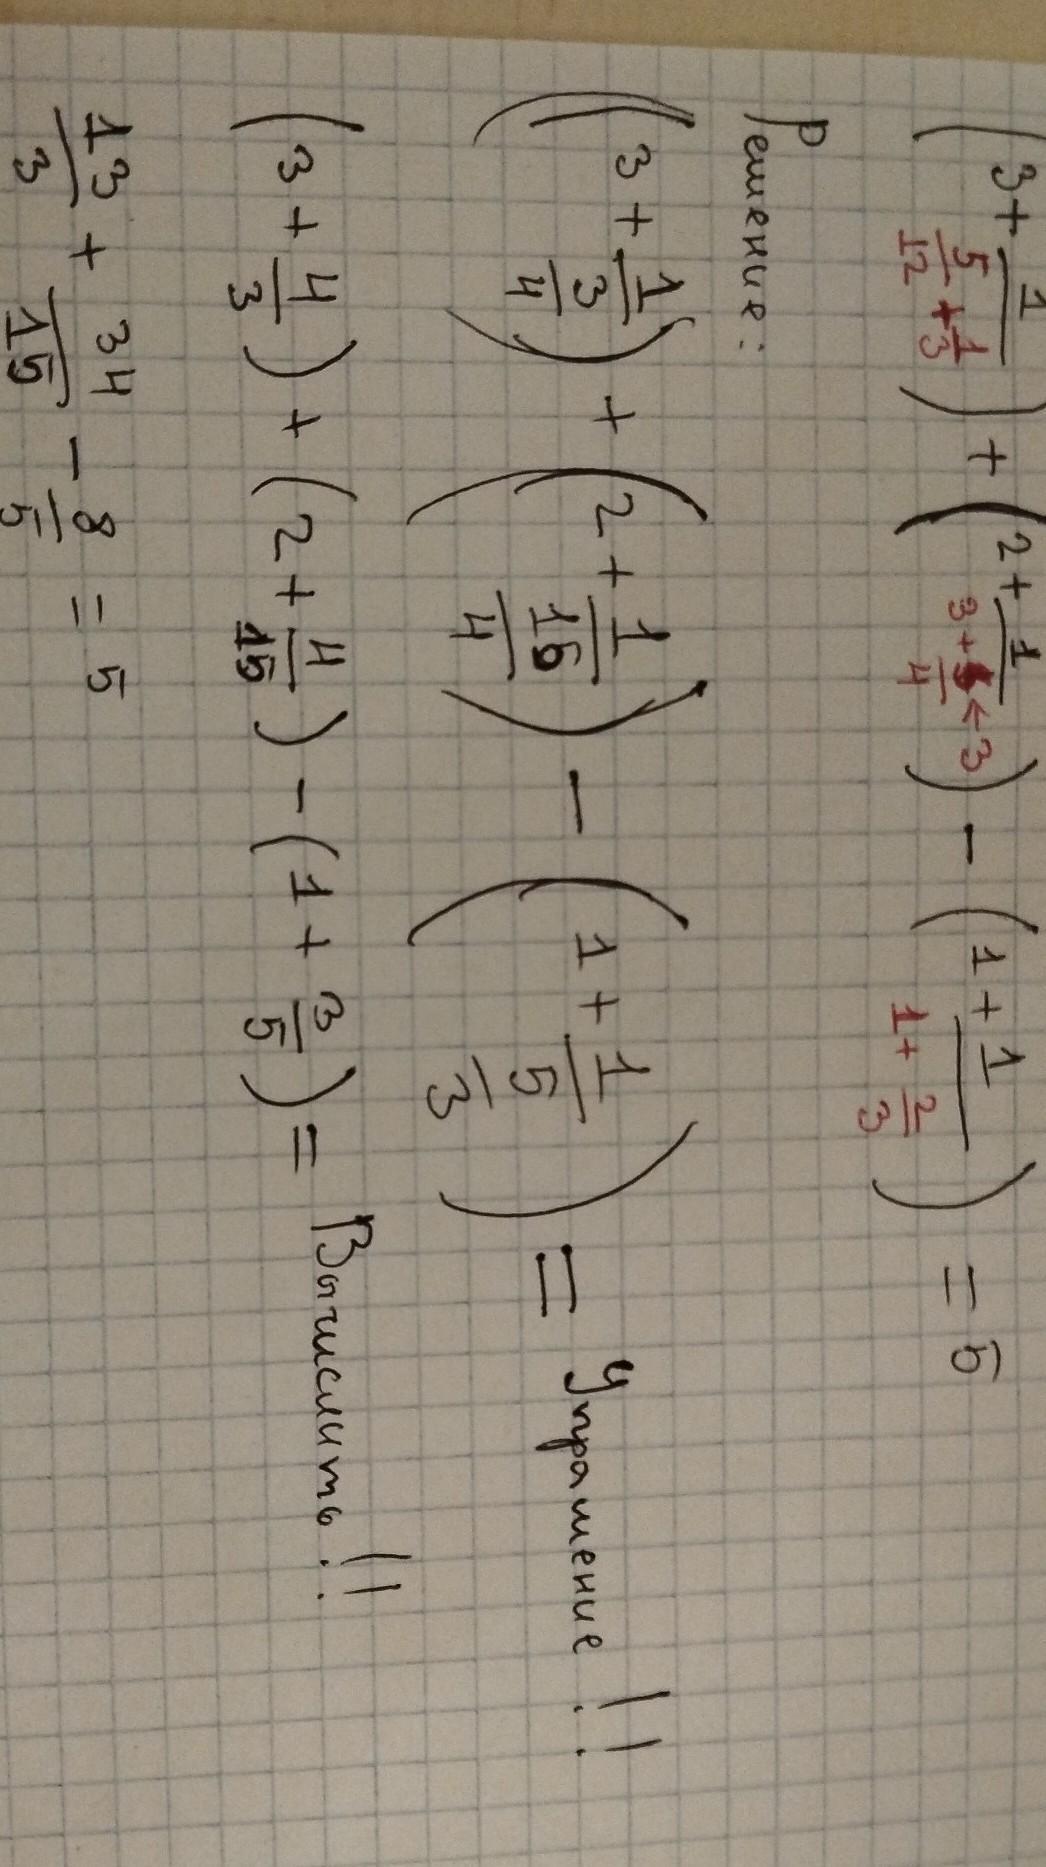 (3 + 1/(5/12 + 1/3)) + (2 + 1/((3 + < 3)/4)) - (1 + 1/(1 + 2/3)) = 5
Решение:
(3 + 1/(3/4)) + (2 + 1/(15/4)) - (1 + 1/(5/3)) = Упрашение!!
(3 + 4/3) + (2 + 4/15) - (1 + 3/5) = Вычислить!!
13/3 + 34/15 - 8/5 = 5